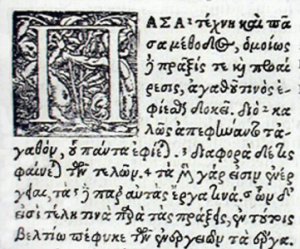 ΠΑΣΑ τέχνη καὶ πᾶ
σα μέθοδος, ὁμοίως
ἢ πρᾶξίς τε κỳ προαί
ρεσις, ἀγαθοῦ τινὸς
ἐφίεσθαι δοκεῖ. διὸ κα
λῶς ἀπεφήναντο τἀ
γαθὸν, οὗ πάντα ἐφίεται. διαφορὰ δέ τις
φαίνεται τῶν τελῶν. τὰ μὲν γάρ εἰσιν ἐνέρ
γειαι, τὰ δὲ παρ' αὐτὰς ἔργα τινά. ὧν δ'
εἰσὶ τέλη τινὰ παρὰ τὰς πράξεις, ἐν τούτοις
βελτίω πέφυκε τῶν ἐνεργειῶν τὰ ἔργα.